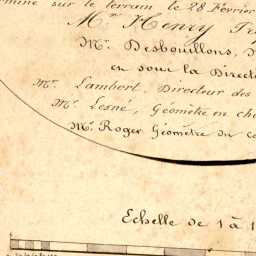 terminé sur le terrain le 28 Février
Mr. Henry
Mr. Desbouillons,
en sous la Direct
Mr. Lambert, Directeur des
Mr. Lesné, Géomètre en ch
Mr. Roger Géomètre du C
Echelle de 1 à 1